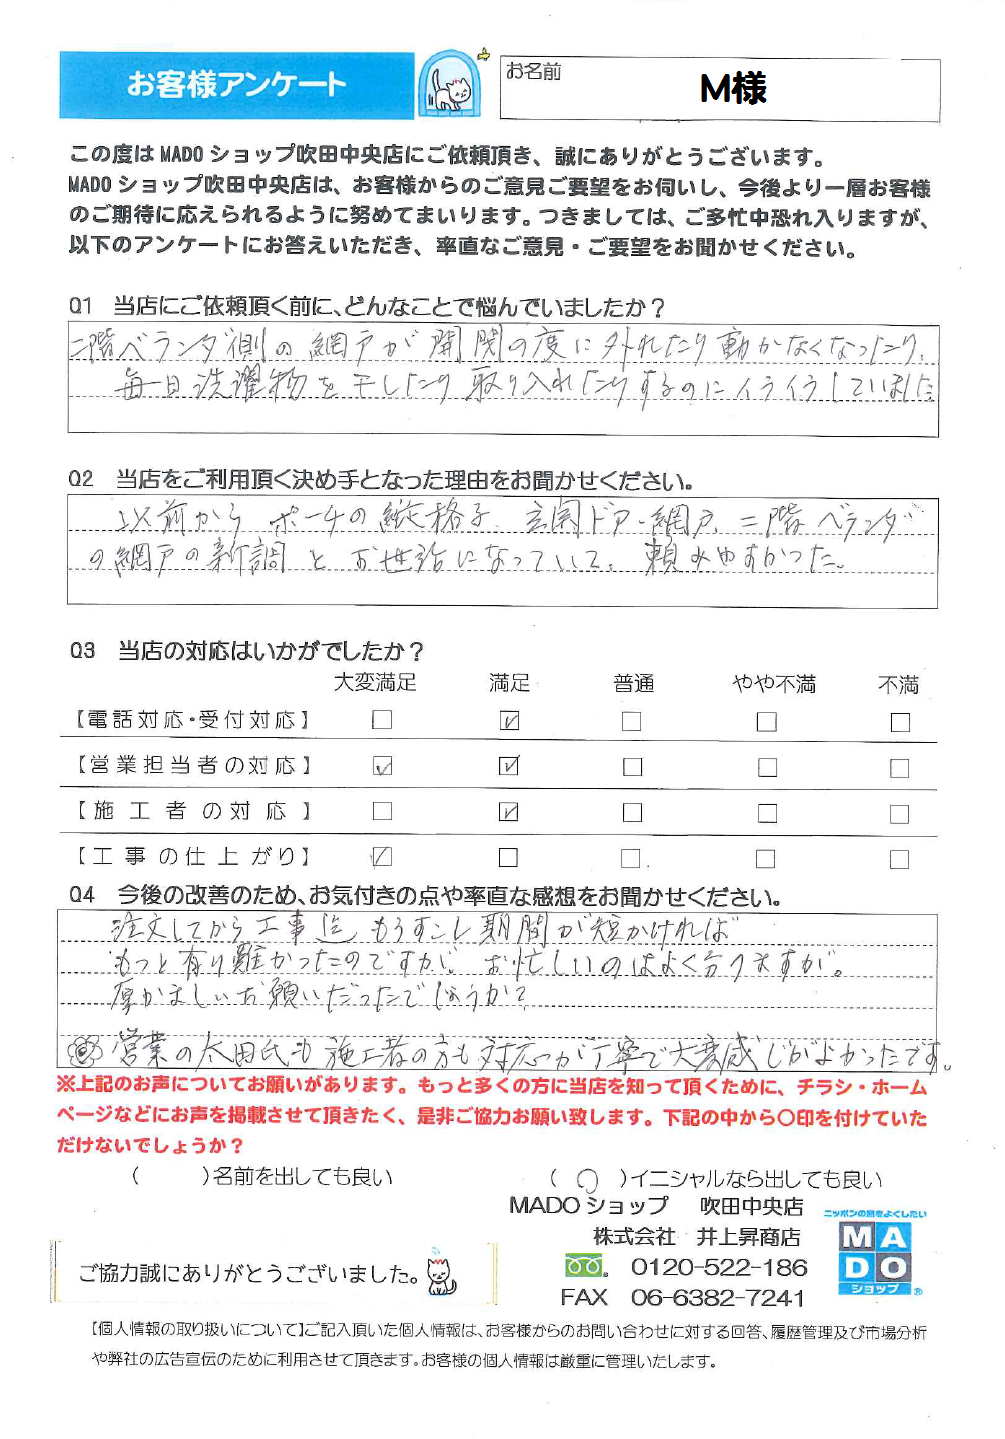 お客様アンケート
お名前
M様
この度はMADOショップ吹田中央店にご依頼頂き、誠にありがとうございます。
MADOショップ吹田中央店は、お客様からのご意見ご要望をお伺いし、今後より一層お客様
のご期待に応えられるように努めてまいります。つきましては、ご多忙中恐れ入りますが、
以下のアンケートにお答えいただき、率直なご意見・ご要望をお聞かせください。
Q1 当店にご依頼頂く前に、どんなことで悩んでいましたか？
二階ベランダ側の網戸が開閉の度に外れたり動かなくなったり、
毎日洗濯物を干したり取り入れたりするのにイライラしていました
Q2 当店をご利用頂く決め手となった理由をお聞かせください。
以前からポーチの縦格子、玄関ドア・網戸、二階ベランダ
の網戸の新調とお世話になっていて、頼みやすかった。
Q3 当店の対応はいかがでしたか？
大変満足 満足 普通 やや不満 不満
【電話対応・受付対応】 □ ☑ □ □ □
【営業担当者の対応】 ☑ ☑ □ □ □
【施工者の対応】 □ ☑ □ □ □
【工事の仕上がり】 ☑ □ □ □ □
Q4 今後の改善のため、お気付きの点や率直な感想をお聞かせください。
注文してから工事迄もうすこし期間が短かければ
もっと有り難かったのですが、お忙しいのはよく分りますが。
厚かましいお願いだったでしょうか？
営業の太田氏も施工者の方も対応が丁寧で大変感じがよかったです。
※上記のお声についてお願いがあります。もっと多くの方に当店を知って頂くために、チラシ・ホーム
ページなどにお声を掲載させて頂きたく、是非ご協力お願い致します。下記の中から〇印を付けていた
だけないでしょうか？
（ ）名前を出しても良い （〇）イニシャルなら出しても良い
MADOショップ 吹田中央店
株式会社 井上昇商店
0120-522-186
FAX 06-6382-7241
ニッポンの窓をよくしたい
MADO
ショップ
ご協力誠にありがとうございました。
【個人情報の取り扱いについて】ご記入頂いた個人情報は、お客様からのお問い合わせに対する回答、履歴管理及び市場分析
や弊社の広告宣伝のために利用させて頂きます。お客様の個人情報は厳重に管理いたします。